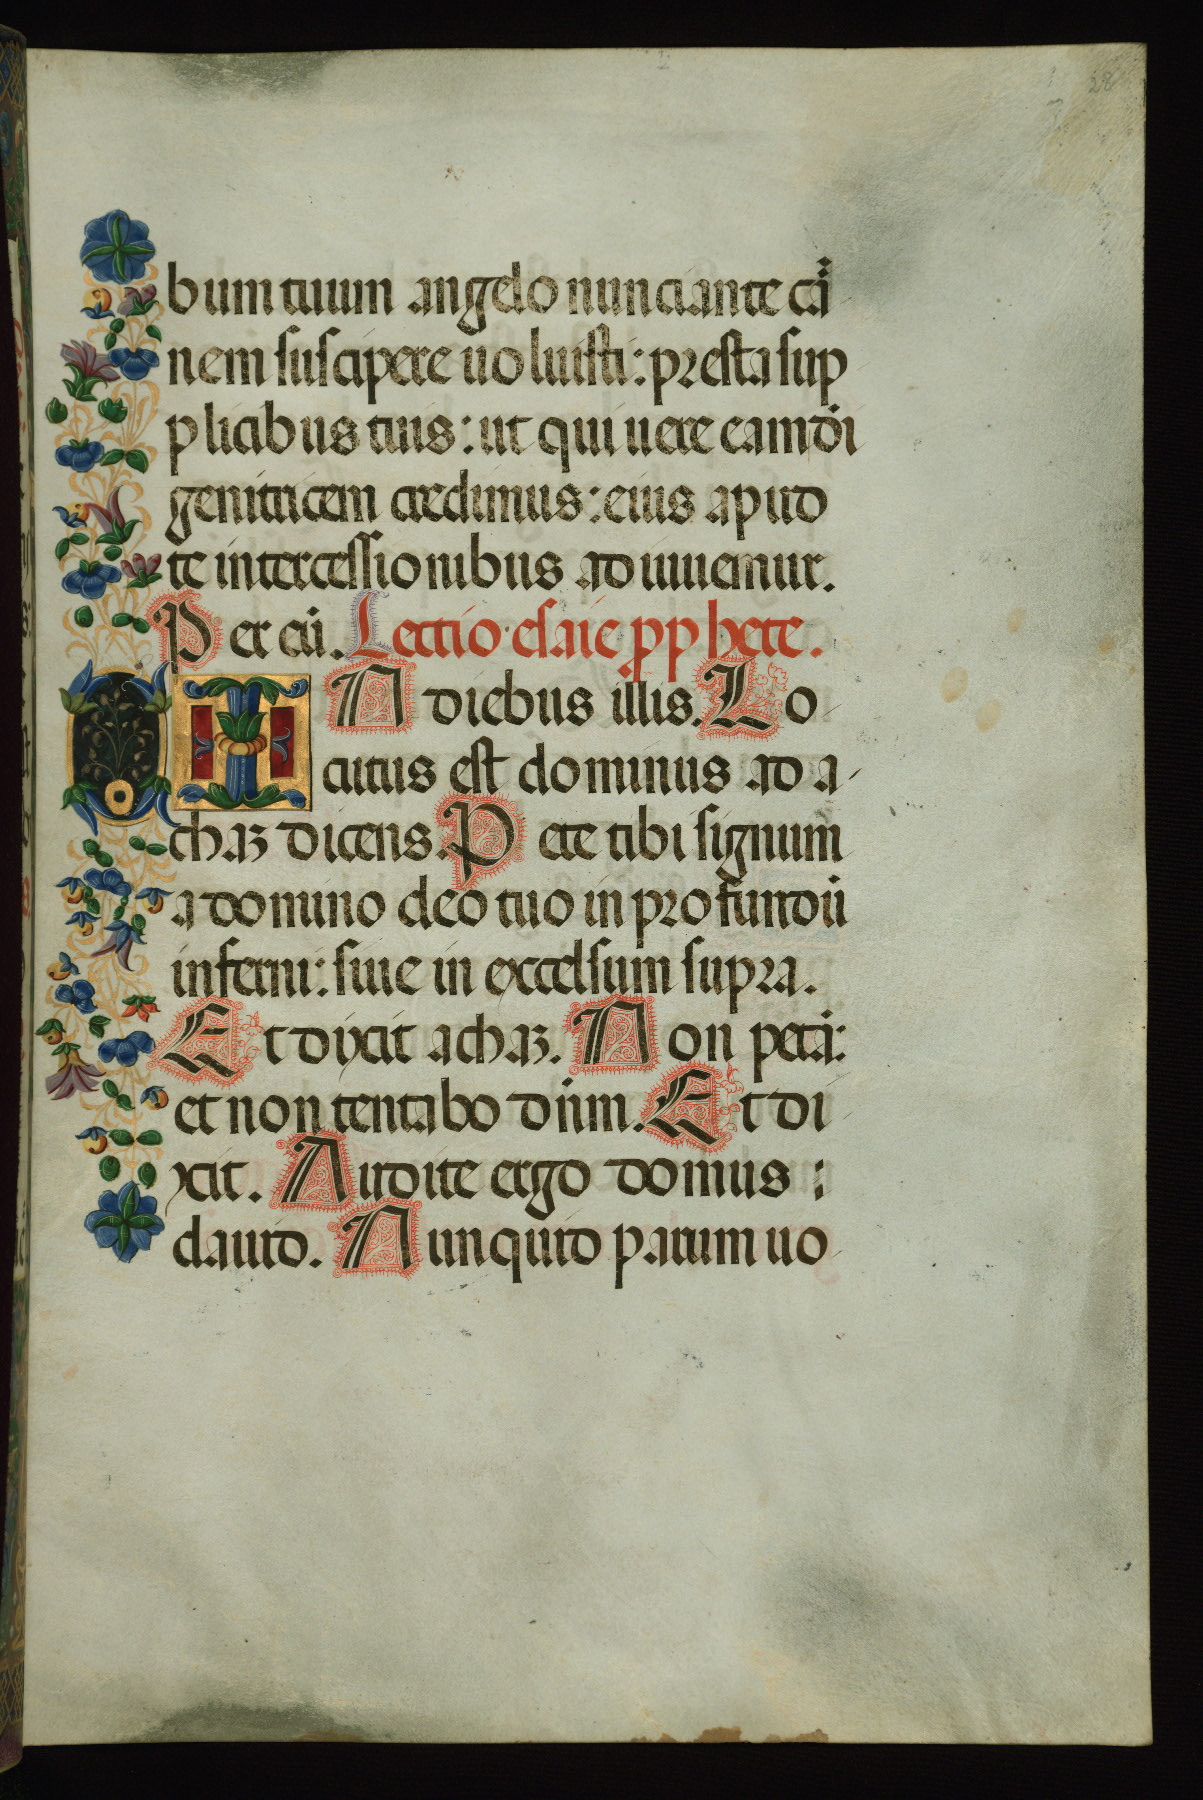 28
bum tuum angelo nunciante cá
nem suscipere uoluisti: presta sup
plicibus tuis: ut qui uere eam dei
genitricem credimus: eius apud
te intercessionibus adiuuemur.
Per eū. Lectio esaie prophete.
IN diebus illis. Lo
cutus est dominus ad a
chaz dicens. Pete tibi signum
a domino deo tuo in profundū
inferni: siue in excelsum supra.
Et dixit achaz. Non petā:
et non tentabo dn̄m. Et di
xit. Audite ergo domus
dauid. Nunquid parum uo